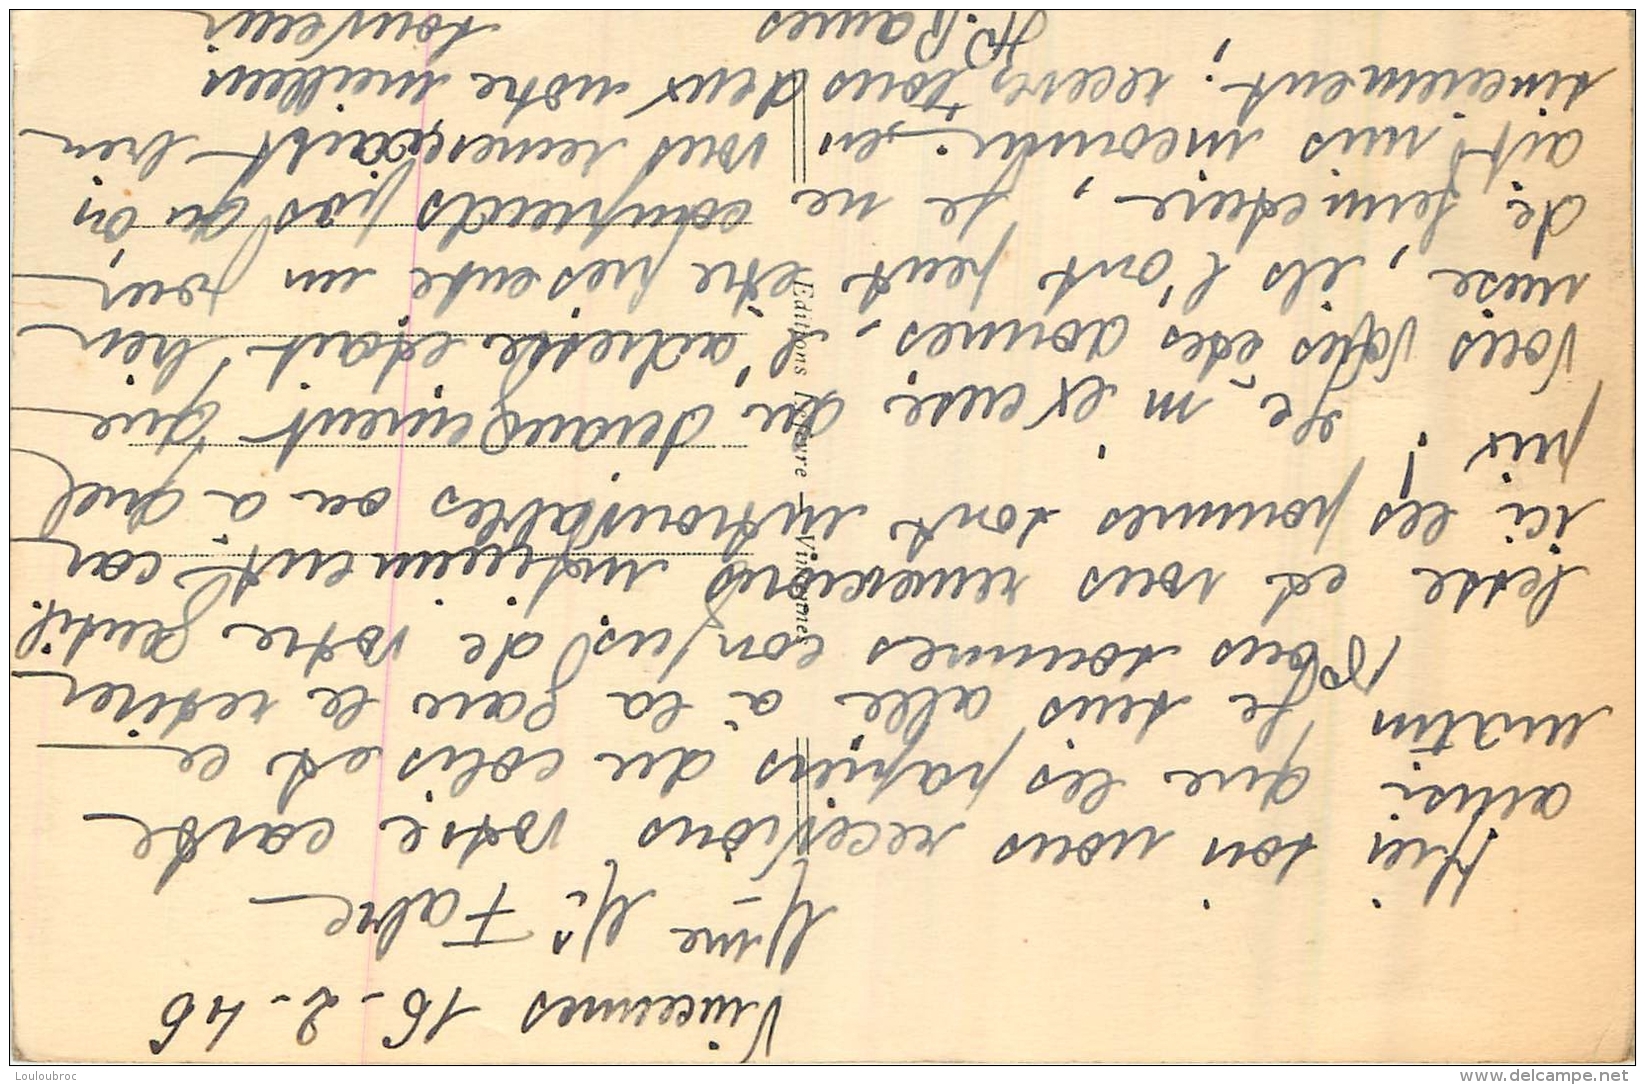 Vincennes 16-2-46
Mme Mr Fabre
Hier soir nous recevions votre carte
ainsi que les papiers du colis et ce
matin je suis allé à la gare le retirer
Nous sommes confus de votre gentil
lesse et vous remercions infiniment car
ici les pommes sont introuvables ou à quel
prix !
Je m'excuse du derangement que
vous vous etes donnés, l'adresse etait bien
mise, ils l'ont peut etre presente un jour
de fermeture, je ne comprends pas qu'on
ait mis inconnu, en vous remerçiant bien
sincerement, recevez tous deux notre meilleur
souvenir
Editions Lefevre — Vincennes
Louloubroc
www.delcampe.net